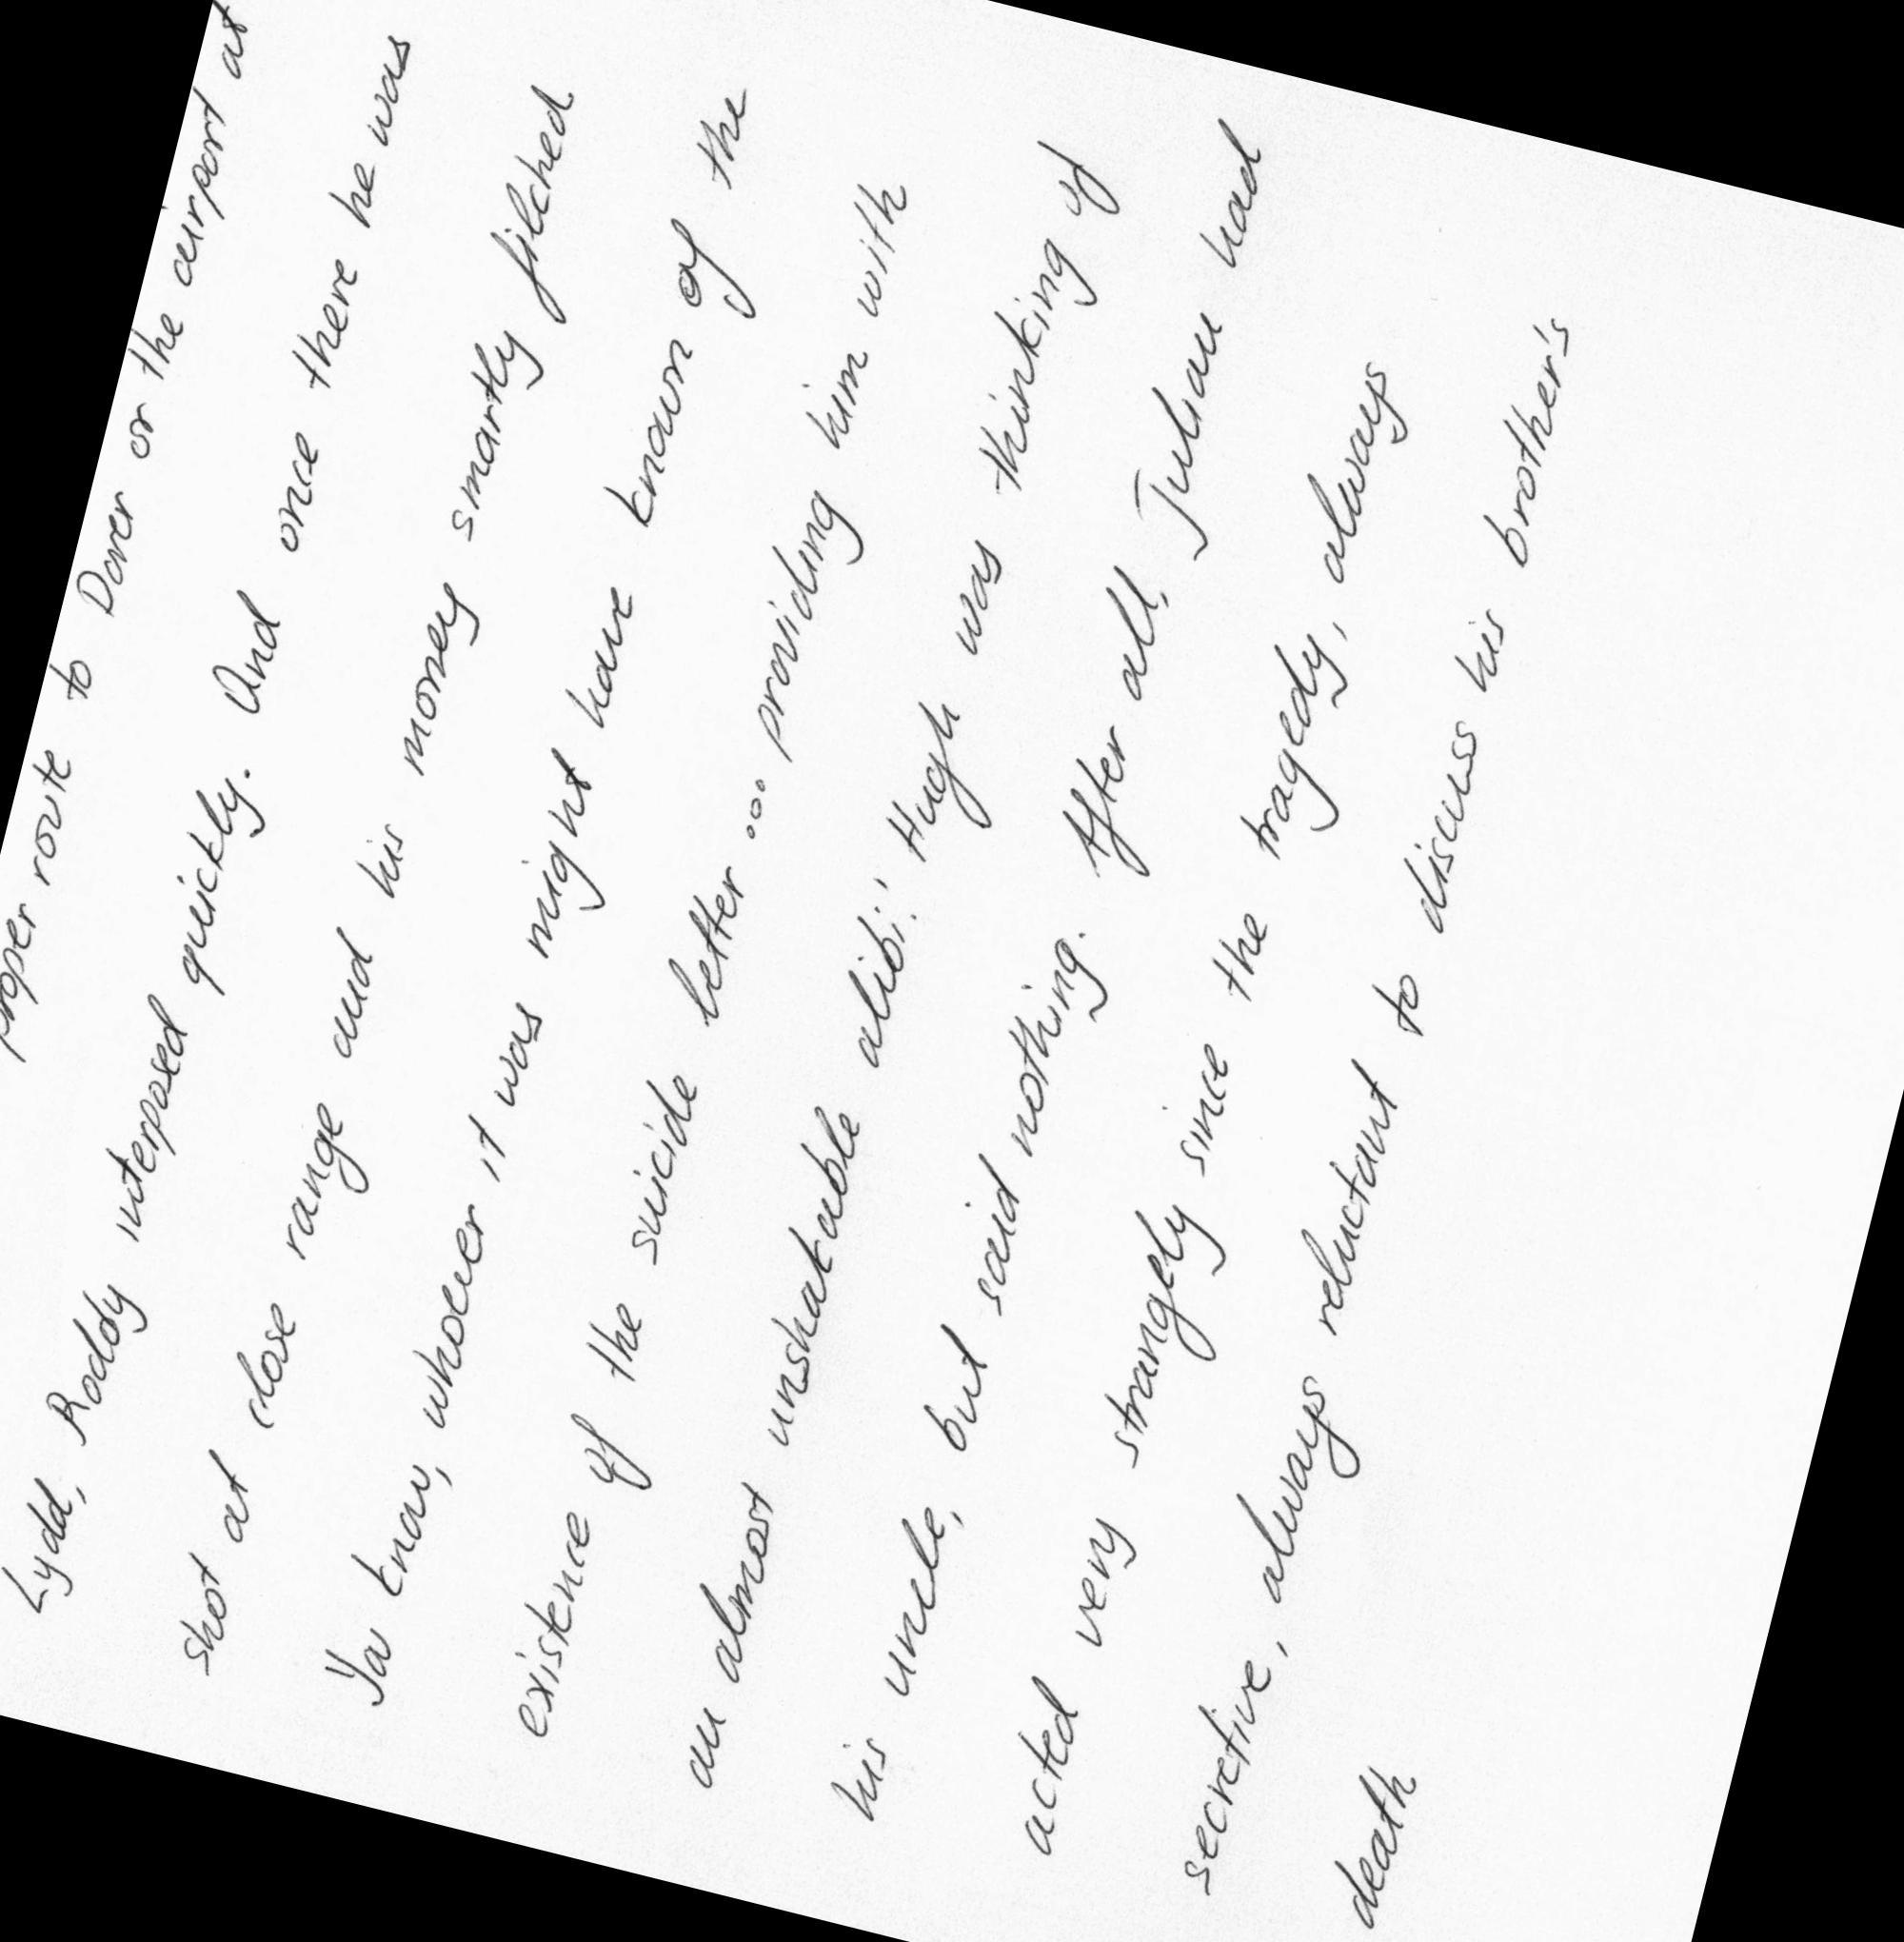 proper route to Dover or the airport at
Lydd, Roddy interposed quickly. And once there he was
shot at close range and his money smartly filched
'Ya know, whoever it was might have known of the
existence of the suicide letter ... providing him with
an almost unshakable alibi.' Hugh was thinking of
his uncle, but said nothing. After all, Julian had
acted very strangely since the tragedy, always
secretive, always reluctant to discuss his brother's
death